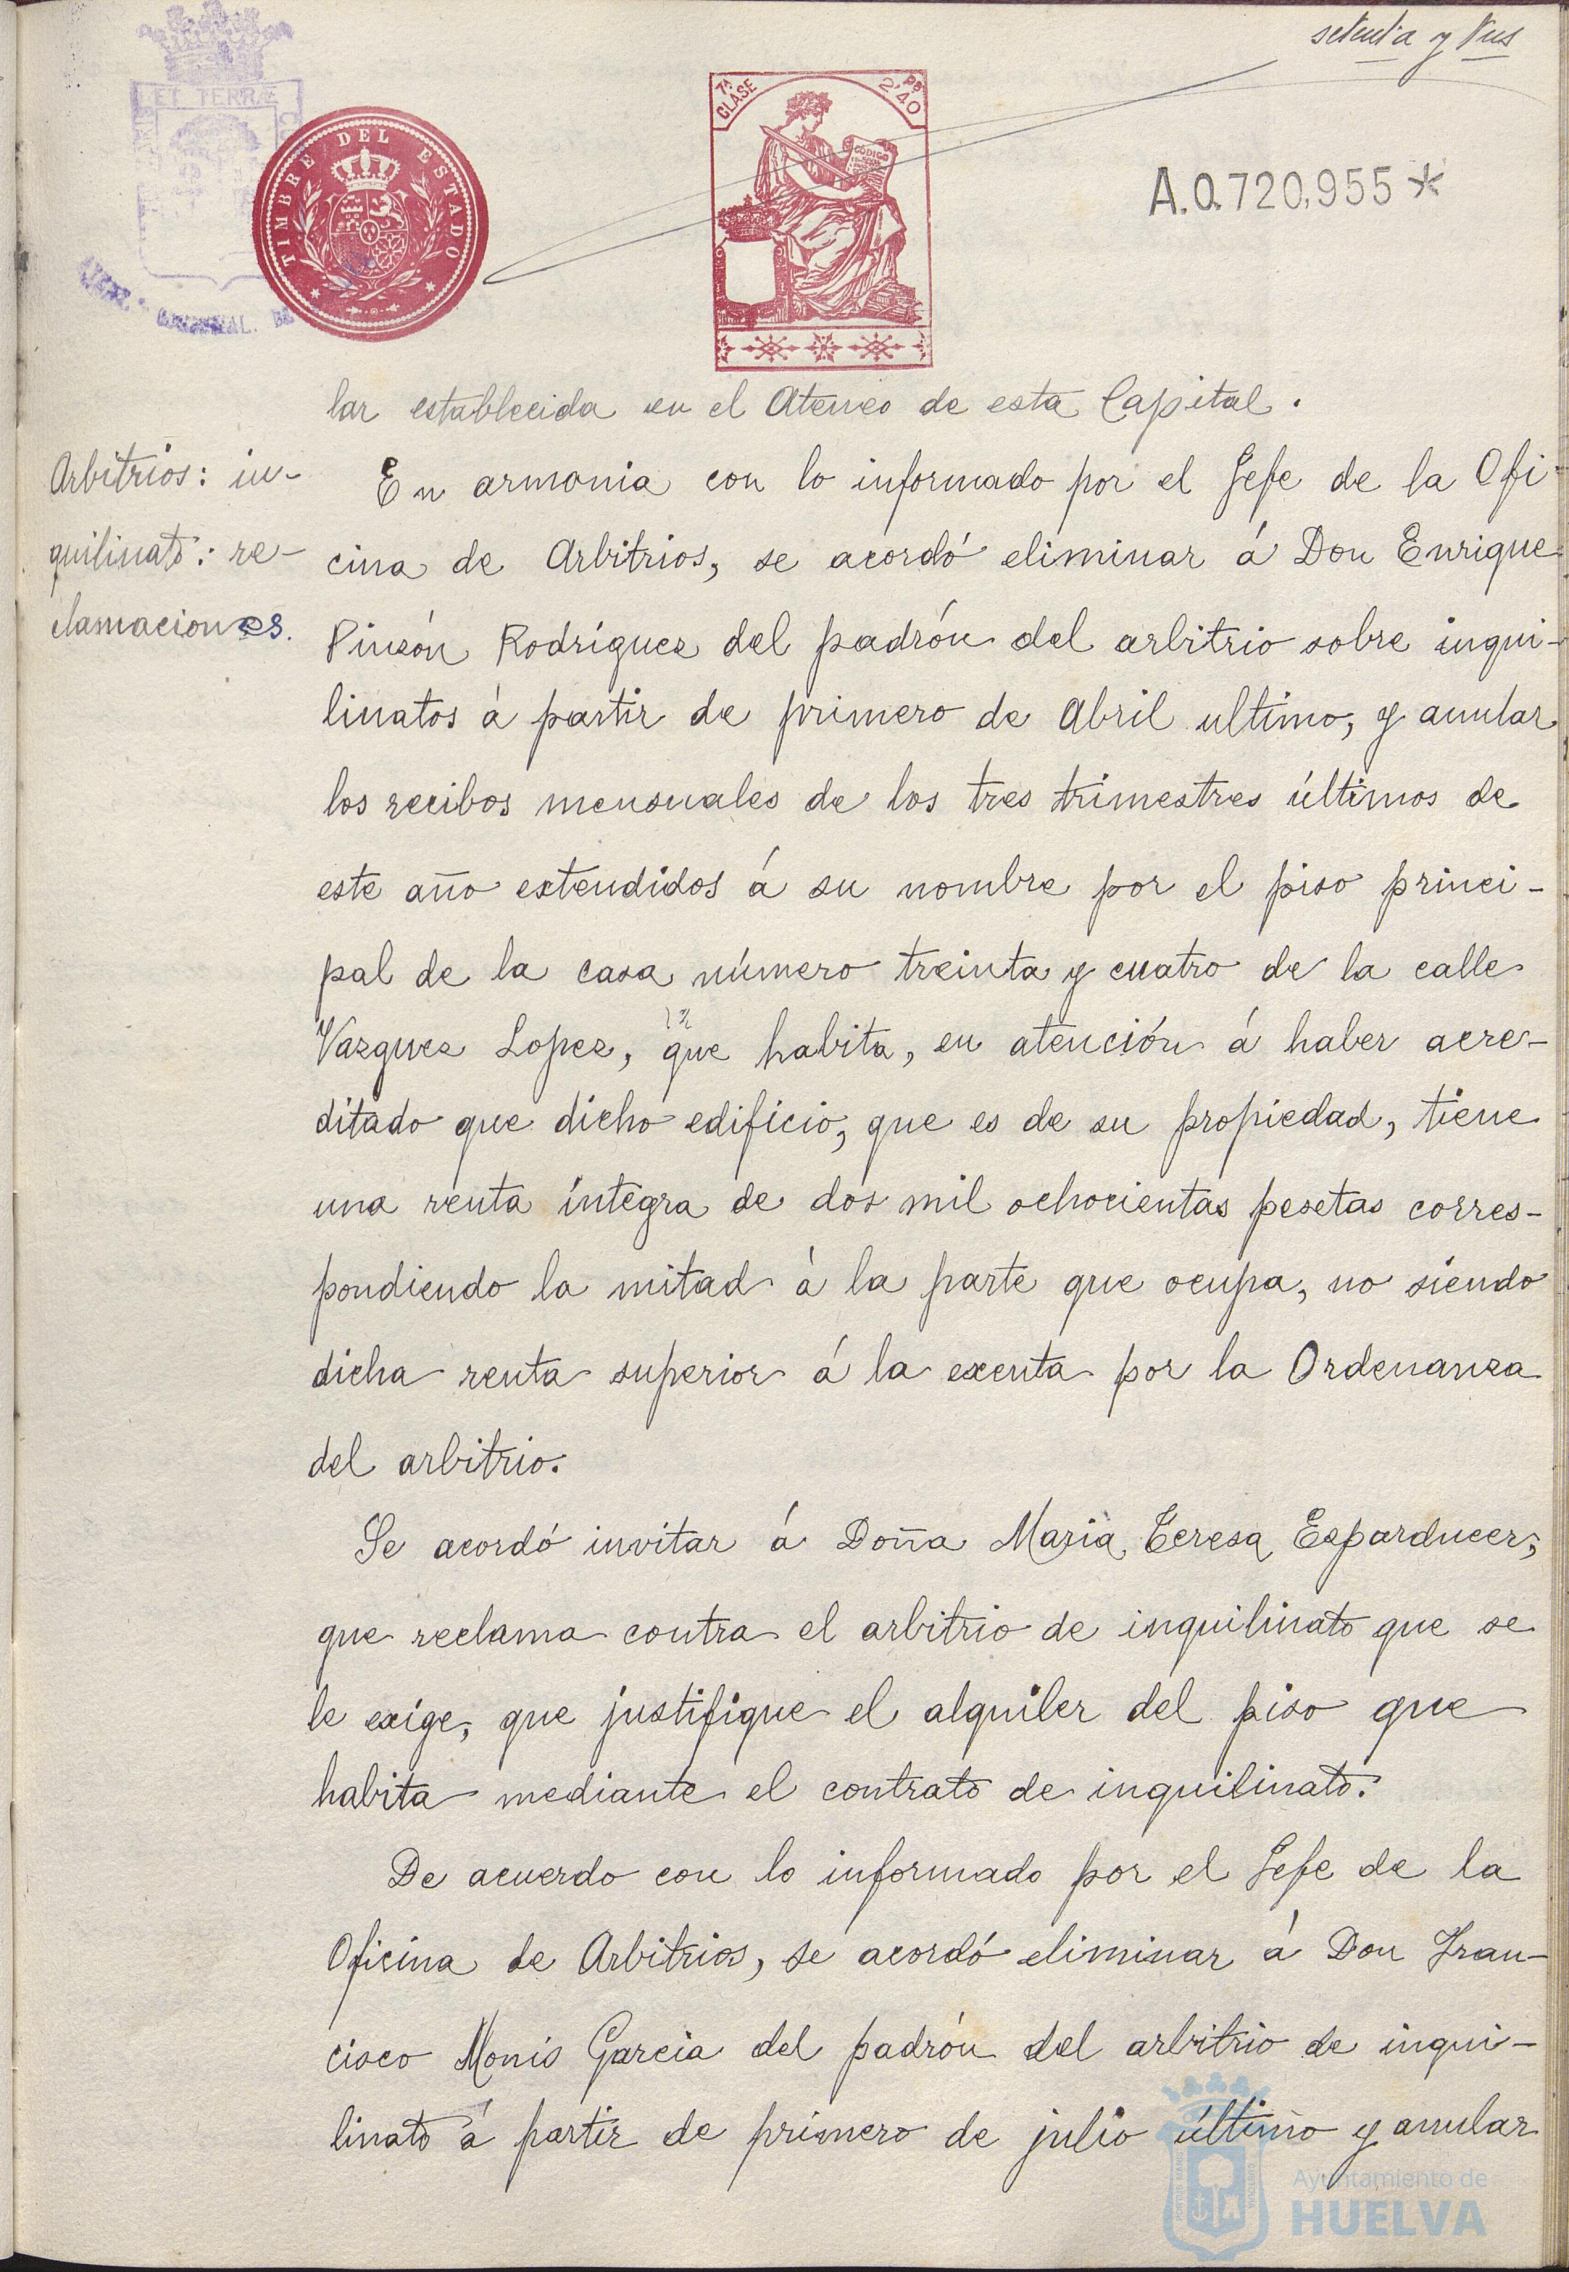 setenta y tres
ET TERRÆ
TIMBRE DEL ESTADO
7ª CLASE
2'40 Pts
CÓDIGO
A.0.720,955*
lar establecida en el Ateneo de esta Capital.
Arbitrios: in-
quilinato: re-
clamaciones.
En armonia con lo informado por el Gefe de la Ofi-
cina de Arbitrios, se acordó eliminar á Don Enrique
Pinzón Rodríguez del padrón del arbitrio sobre inqui-
linatos á partir de primero de Abril ultimo, y anular
los recibos mensuales de los tres trimestres últimos de
este año extendidos á su nombre por el piso princi-
pal de la casa número treinta y cuatro de la calle
Vazquez Lopez, que habita, en atención á haber acre-
ditado que dicho edificio, que es de su propiedad, tiene
una renta íntegra de dos mil ochocientas pesetas corres-
pondiendo la mitad á la parte que ocupa, no siendo
dicha renta superior á la exenta por la Ordenanza
del arbitrio.
Se acordó invitar á Doña Maria Teresa Esparducer,
que reclama contra el arbitrio de inquilinato que se
le exige, que justifique el alquiler del piso que
habita mediante el contrato de inquilinato.
De acuerdo con lo informado por el Gefe de la
Oficina de Arbitrios, se acordó eliminar á Don Fran-
cisco Monis Garcia del padrón del arbitrio de inqui-
linato á partir de primero de julio último y anular
Ayuntamiento de
HUELVA